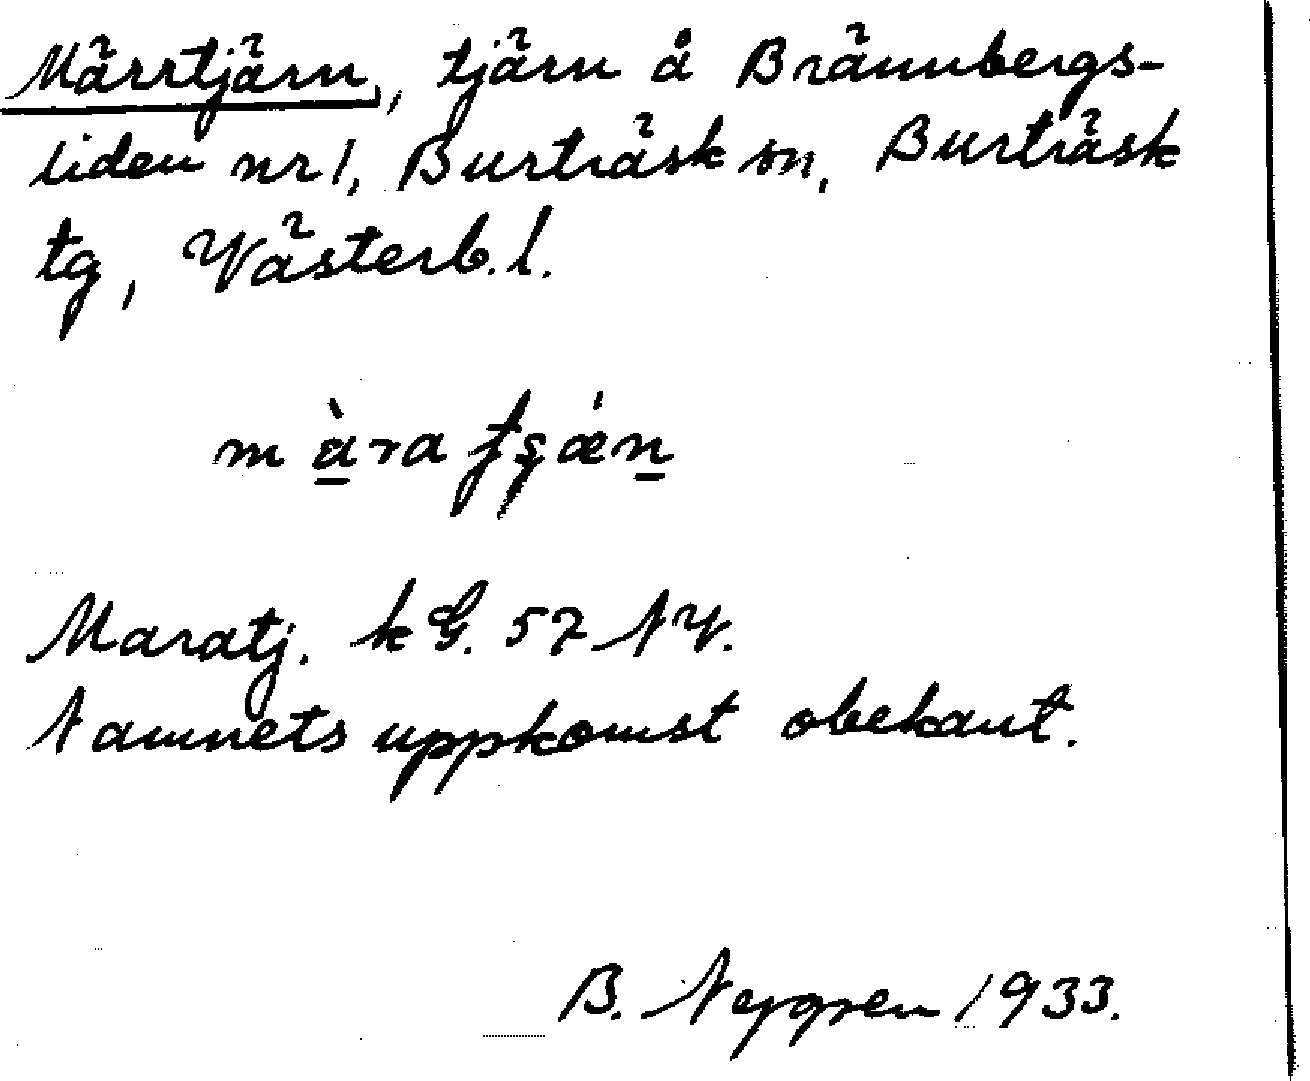 Märrtjärn, tjärn å Brännbergs-
liden nr 1, Burträsk sn, Burträsk
tg, Västerb. l.
Maratj. k G. 57 NV.
Namnets uppkomst obekant.
B. Nygren 1933.